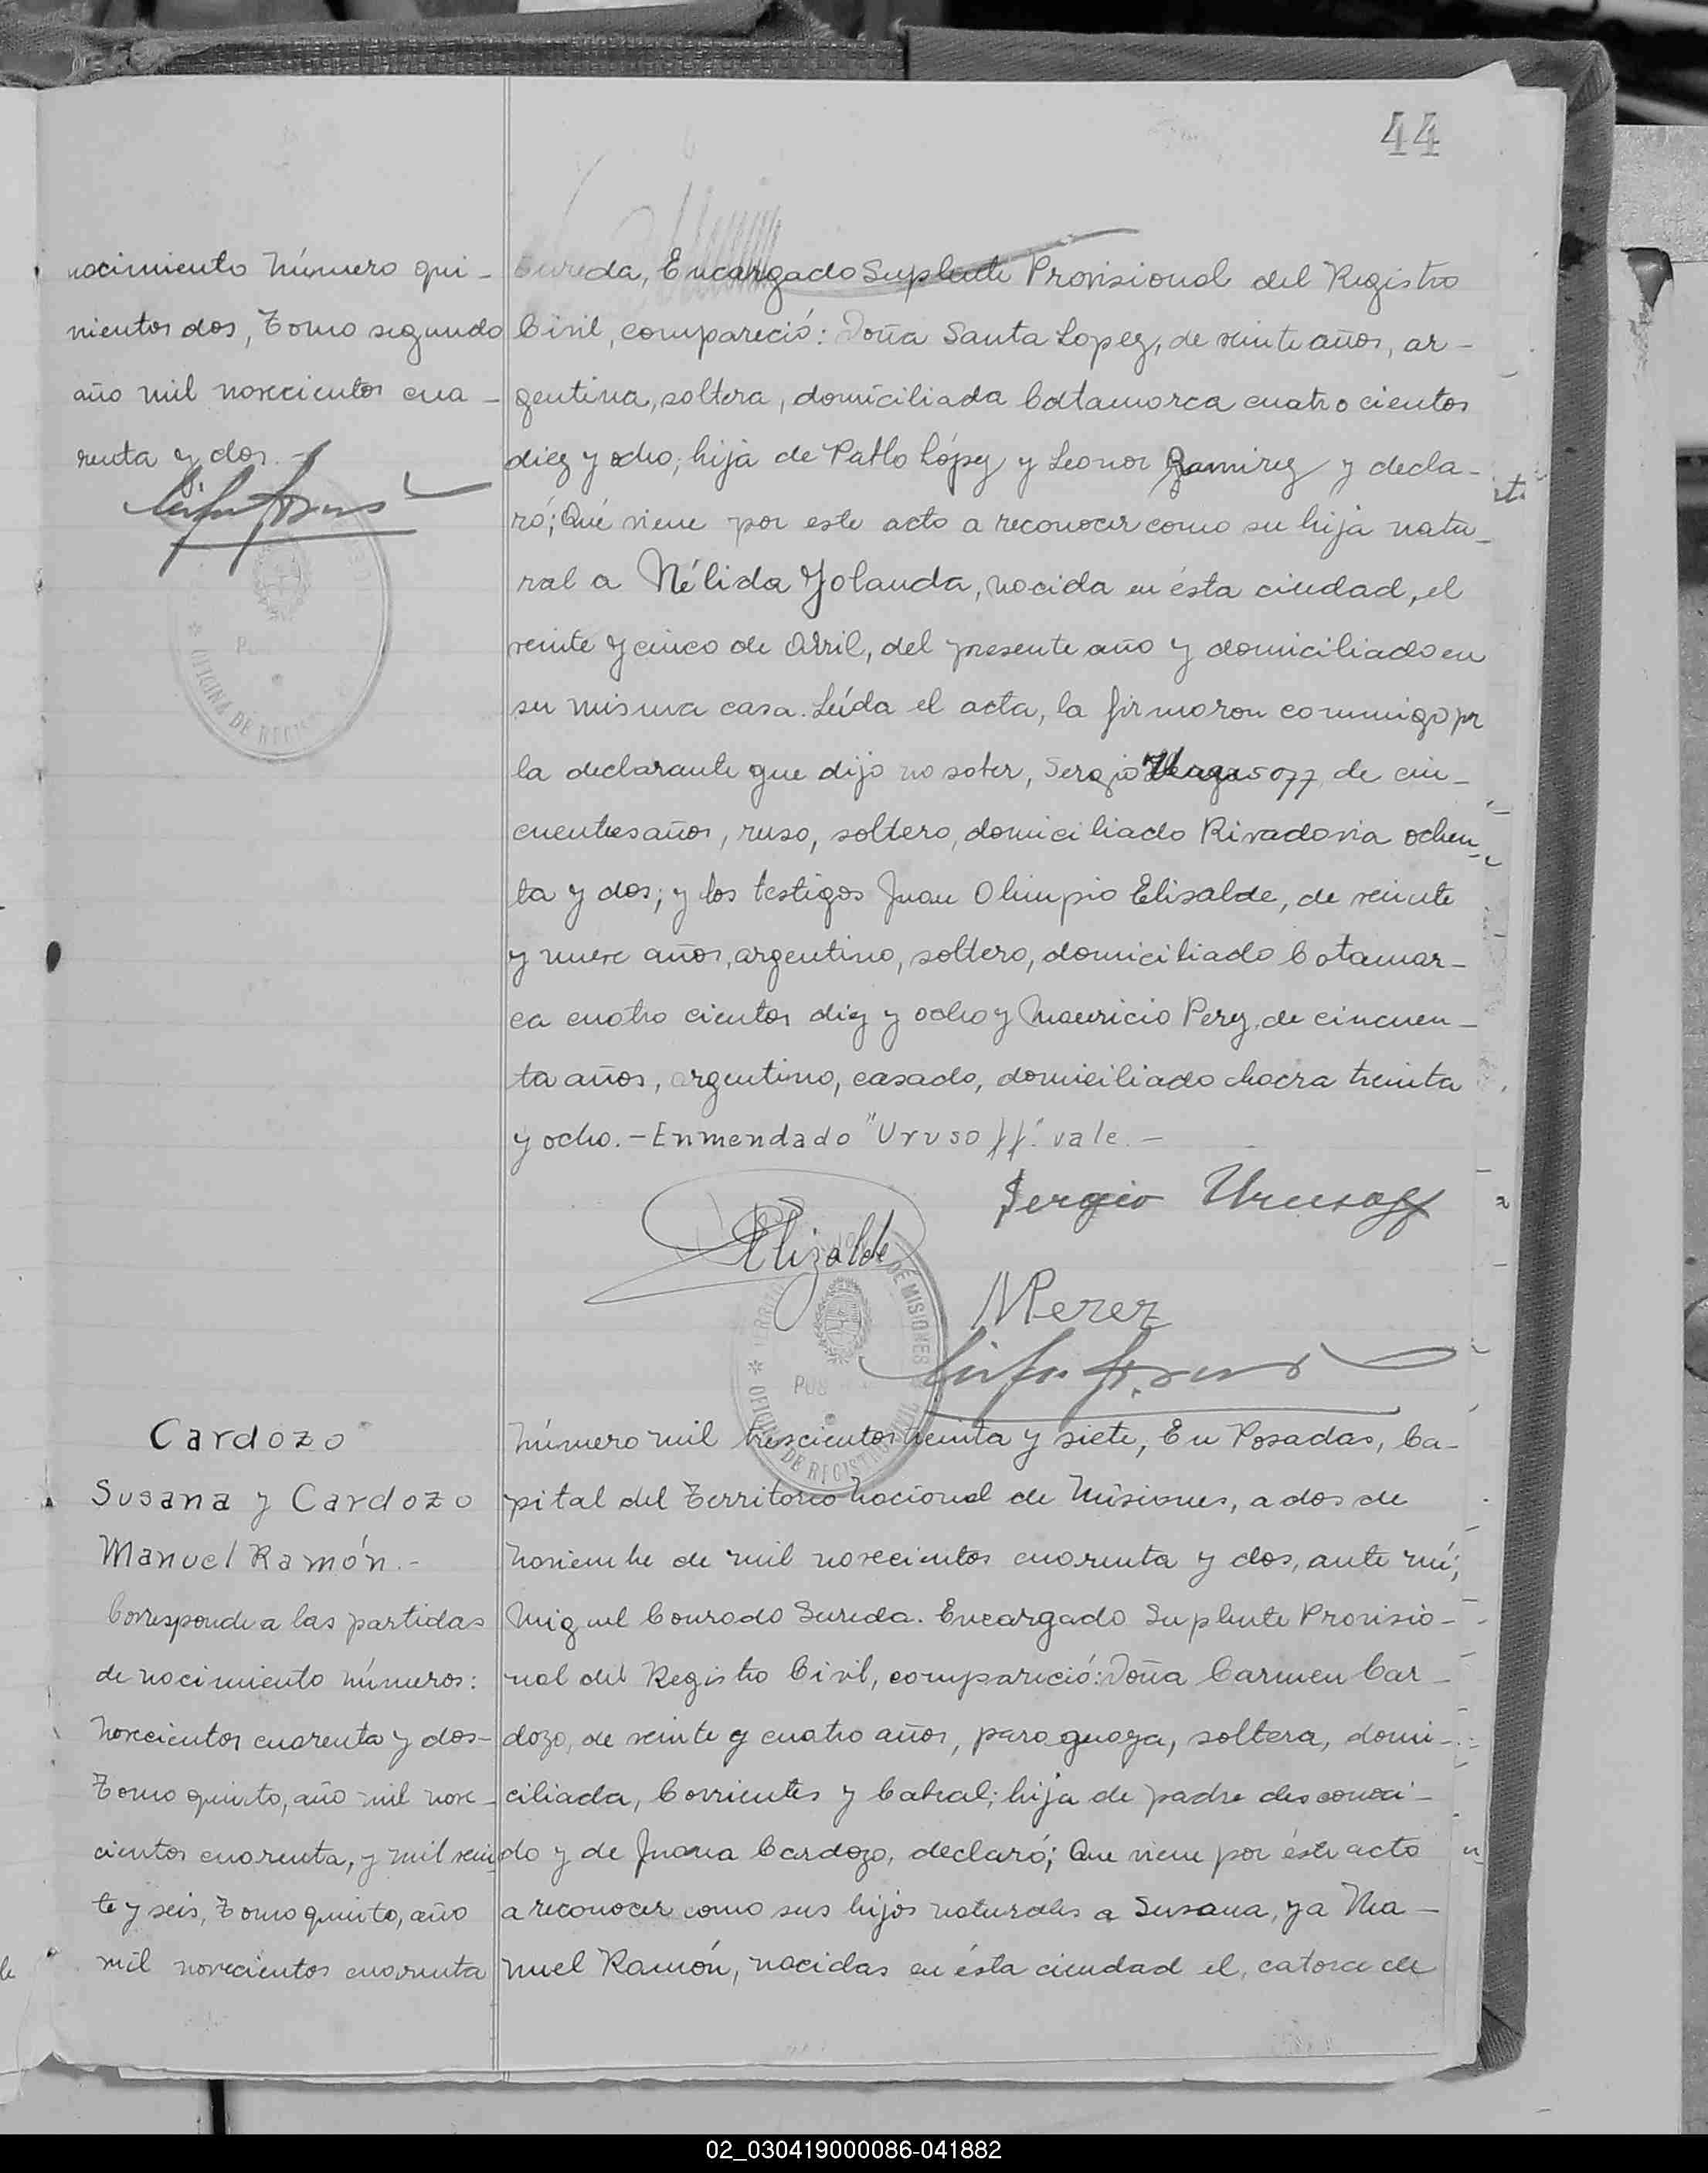 44
nacimiento número qui-
nientos dos, Tomo segundo
año mil novecientos cua-
renta y dos.-
OFICINA DE REGIS
Sureda, Encargado Suplente Provisional del Registro
Civil, compareció: Doña Santa Lopez, de veinte años, ar-
gentina, soltera, domiciliada Catamarca cuatrocientos
diez y ocho; hija de Pablo López y Leonor Ramirez y decla-
ró; Qué viene por este acto a reconocer como su hija natu-
ral a Nélida Yolanda, nacida en ésta ciudad, el
veinte y cinco de Abril, del presente año y domiciliado en
su misma casa. Leída el acta, la firmaron conmigo por
la declarante que dijo no saber, Sergio de cin-
cuentres años, ruso, soltero, domiciliado Rivadavia ochen-
ta y dos; y los testigos Juan Olimpio Elisalde, de veinte
y nueve años, argentino, soltero, domiciliado Catamar-
ca cuatro cientos diez y ocho y Mauricio Perez, de cincuen-
ta años, argentino, casado, domiciliado chacra treinta
y ocho.- Enmendado "Urusoff" vale.-
Sergio Urusoff
Elizalde
MPerez
DE MISIONES
OFICINA DE REGISTRO CIVIL
Cardozo
Susana y Cardozo
Manuel Ramón.-
Corresponde a las partidas
de nacimiento números:
novecientos cuarenta y dos-
Tomo quinto, año mil nove-
cientos cuarenta, y mil vein
te y seis, Tomo quinto, año
mil novecientos cuarenta
Número mil trescientos treinta y siete, En Posadas, Ca-
pital del Territorio Nacional de Misiones, a dos de
Noviembre de mil novecientos cuarenta y dos, ante mí;
Miguel Conrado Sureda. Encargado Suplente Provisio-
nal del Registro Civil, compareció: Doña Carmen Car-
dozo, de veinte y cuatro años, paraguaya, soltera, domi-
ciliada, Corrientes y Cabral; hija de padre desconoci-
do y de Juana Cardozo, declaró; Que viene por éste acto
a reconocer como sus hijos naturales a Susana, y a Ma-
nuel Ramón, nacidas en ésta ciudad el, catorce de
02_030419000086-041882